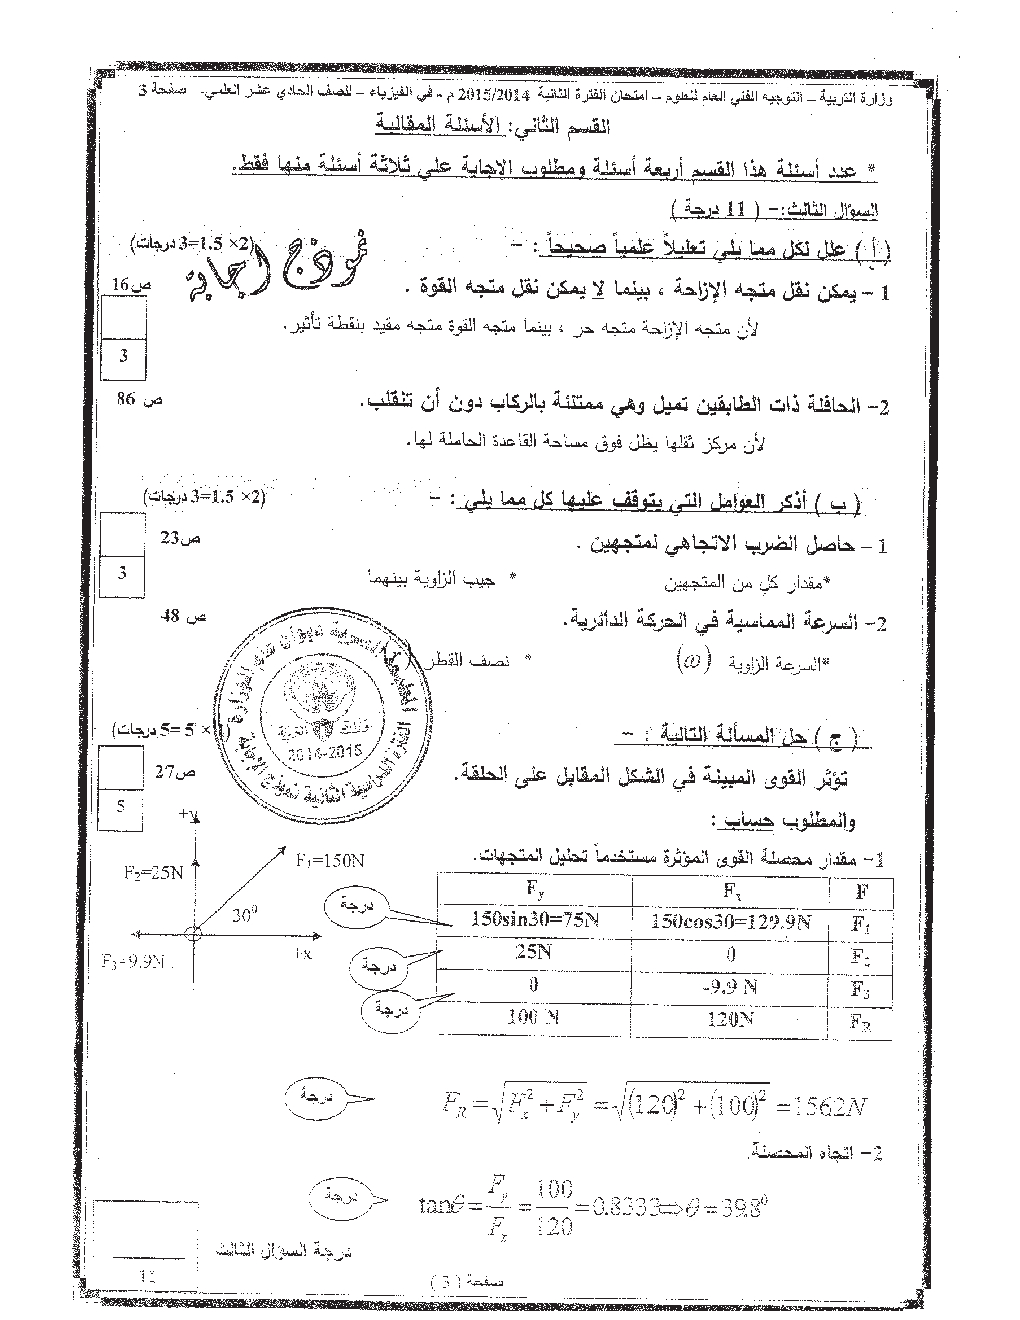 وزارة التربية – التوجيه الفني العام للعلوم – امتحان الفترة الثانية 2015/2014 م - في الفيزياء – للصف الحادي عشر العلمي. صفحة 3
القسم الثاني: الأسئلة المقالية
* عدد أسئلة هذا القسم أربعة أسئلة ومطلوب الاجابة على ثلاثة أسئلة منها فقط.
السؤال الثالث:- ( 11 درجة )
( أ ) علل لكل مما يلي تعليلاً علمياً صحيحاً : - (2× 1.5=3 درجات)
نموذج اجابة
1 – يمكن نقل متجه الإزاحة ، بينما لا يمكن نقل متجه القوة . ص16
لأن متجه الإزاحة متجه حر ، بينما متجه القوة متجه مقيد بنقطة تأثير.
3
2- الحافلة ذات الطابقين تميل وهي ممتلئة بالركاب دون أن تنقلب. ص 86
لأن مركز ثقلها يظل فوق مساحة القاعدة الحاملة لها.
( ب ) أذكر العوامل التي يتوقف عليها كل مما يلي : - (2× 1.5=3 درجات)
1 – حاصل الضرب الاتجاهي لمتجهين . ص23
*مقدار كل من المتجهين * جيب الزاوية بينهما
3
2- السرعة المماسية في الحركة الدائرية. ص 48
*السرعة الزاوية (ω) * نصف القطر
2014-2015
( ج ) حل المسألة التالية : - × 5 =5 درجات)
تؤثر القوى المبينة في الشكل المقابل على الحلقة. ص27
والمطلوب حساب :
5
1- مقدار محصلة القوى المؤثرة مستخدماً تحليل المتجهات.
+y
F₂=25N
F₁=150N
30⁰
+x
F₃=9.9N
F Fx Fy
F₁ 150cos30=129.9N 150sin30=75N درجة
F₂ 0 25N درجة
F₃ -9.9 N 0 درجة
F_R 120N 100 N
F_R = √(F_x² + F_y²) = √((120)² + (100)²) = 1562N درجة
2- اتجاه المحصلة.
tanθ = F_y/F_x = 100/120 = 0.8333 ⇒ θ = 39.8⁰ درجة
درجة السؤال الثالث
صفحة ( 3 )